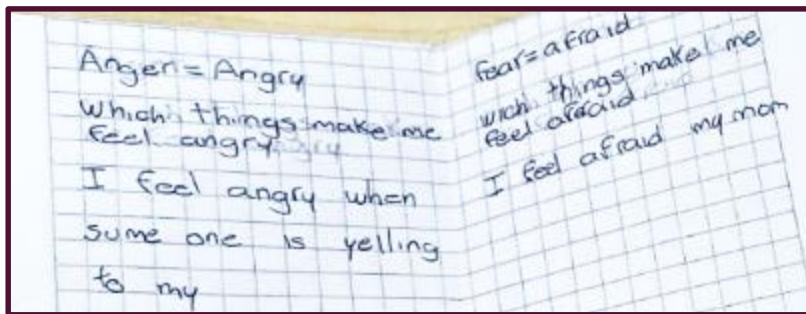 Anger = Angry
which things make me
feel angry
I feel angry when
sume one is yelling
to my
fear = afraid
wich things make me
feel afraid
I feel afraid my mom